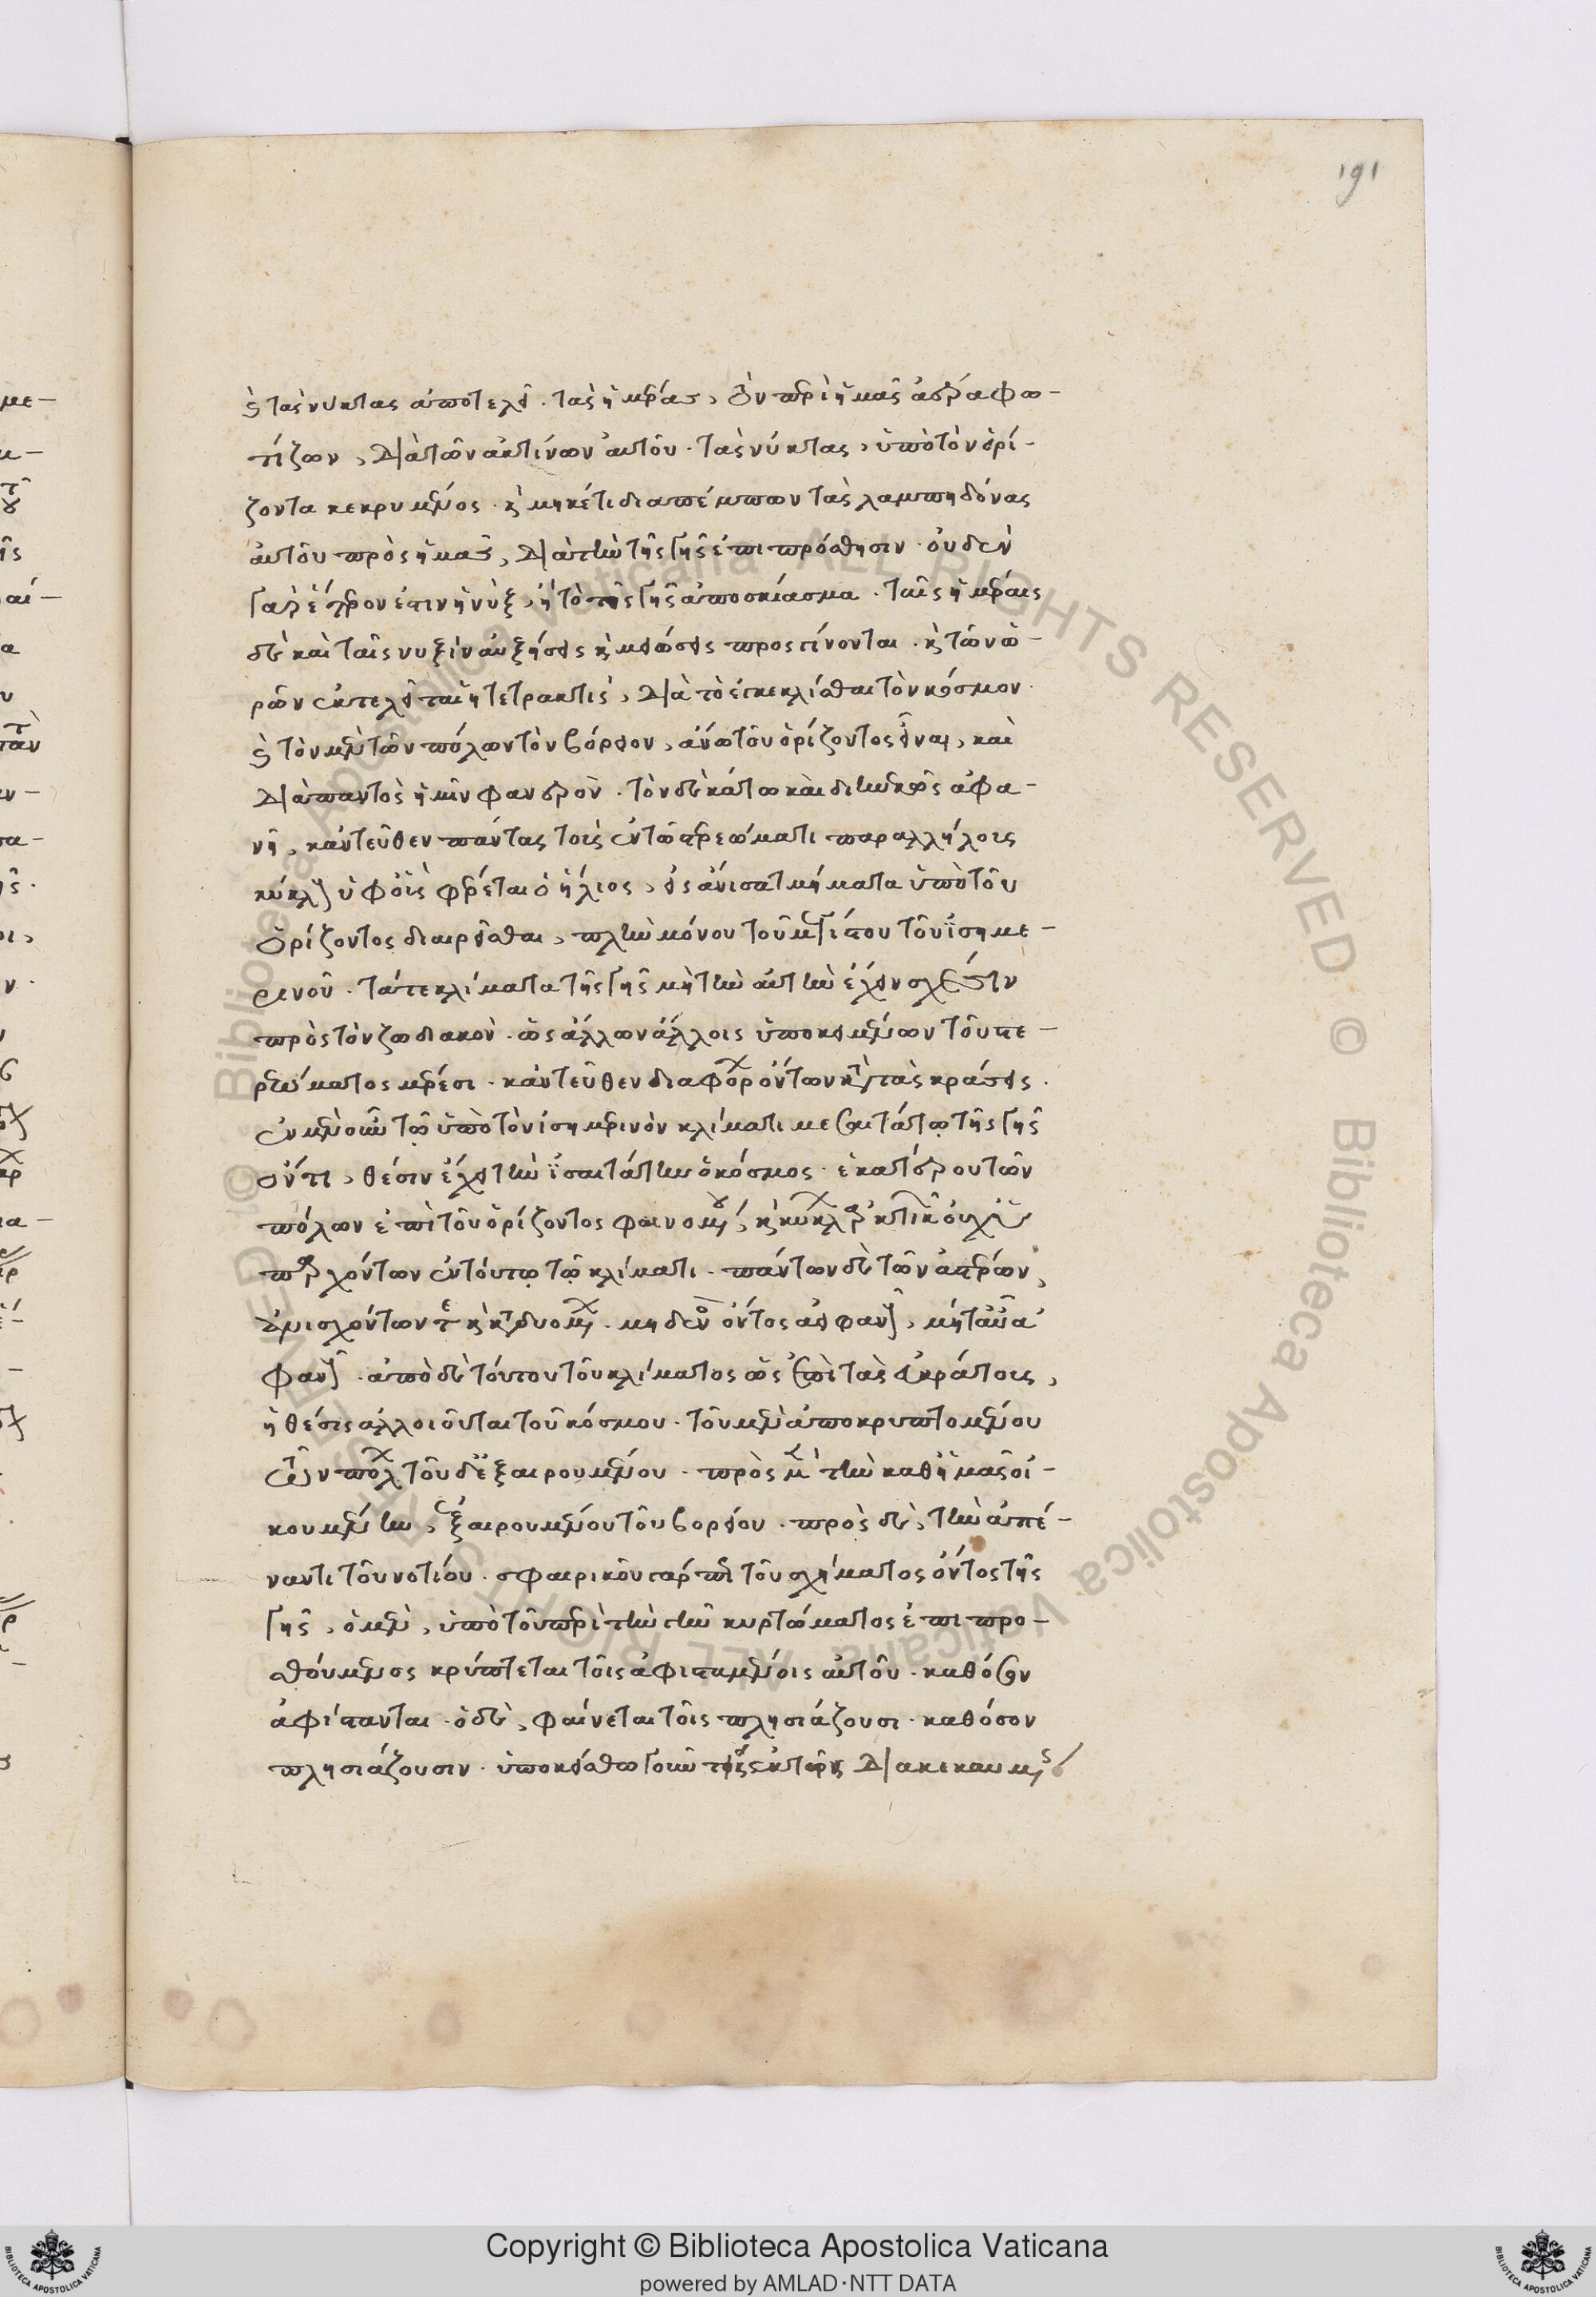 191
καὶ τὰς νύκτας ἀποτελεῖ. τὰς ἡμέρας, τὸν περὶ ἡμᾶς ἀέρα φω-
τίζων, διὰ τῶν ἀκτίνων αὐτοῦ. τὰς νύκτας, ὑπὸ τὸν ὁρί-
ζοντα κεκρυμμένος. καὶ μηκέτι διαπέμπων τὰς λαμπηδόνας
αὐτοῦ πρὸς ἡμᾶς, διὰ τὴν τῆς γῆς ἐπιπρόσθησιν. οὐδὲν
γὰρ ἕτερον ἐστιν ἡ νὺξ, ἢ τὸ τῆς γῆς ἀποσκίασμα. ταῖς ἡμέραις
δὲ καὶ ταῖς νυξὶν αὐξήσεις καὶ μειώσεις προσγίνονται. καὶ τῶν ὡ-
ρῶν ἐκτελεῖται ἡ τετρακτὺς, διὰ τὸ ἐγκεκλίσθαι τὸν κόσμον.
καὶ τὸν μὲν τῶν πόλων τὸν βόρειον, ἄνω τοῦ ὁρίζοντος εἶναι, καὶ
διὰ παντὸς ἡμῖν φανερὸν. τὸν δὲ κάτω καὶ διηνεκῶς ἀφα-
νῆ, κἀντεῦθεν πάντας τοὺς ἐν τῶ στερεώματι παραλλήλους
κύκλους ὑφ οἷς φέρεται ὁ ἥλιος, εἰς ἄνισα τμήματα ὑπὸ τοῦ
ὁρίζοντος διαιρεῖσθαι, πλὴν μόνου τοῦ μεγίστου τοῦ ἰσημε-
ρινοῦ. τά τε κλίματα τῆς γῆς μὴ τὴν αὐτὴν ἔχειν σχέσιν
πρὸς τὸν ζωδιακὸν. ὡς ἄλλων ἄλλοις ὑποκειμένων τοῦ στε-
ρεώματος μέρεσι. κἀντεῦθεν διαφόρων ὄντων κατὰ τὰς κράσεις.
ἐν μὲν οὖν τῷ ὑπὸ τὸν ἰσημερινὸν κλίματι μεσαιτάτῳ τῆς γῆς
ὄντι, θέσιν ἔχει τὴν ἰσαιτάτην ὁ κόσμος. ἑκατέρου τῶν
πόλων ἐπὶ τοῦ ὁρίζοντος φαινομένου, καὶ κύκλων ἀρκτικῶν οὐχ
ὑπαρχόντων ἐν τούτῳ τῷ κλίματι. πάντων δὲ τῶν ἀστέρων,
ἀνισχόντων τε καὶ καταδυομένων. μηδενὸς ὄντος ἀειφανοῦς, μήτ αὖ ἀ
φανοῦς. ἀπὸ δὲ τούτου τοῦ κλίματος ὡς ἐπὶ τὰς εὐκράτους,
ἡ θέσις ἀλλοιοῦται τοῦ κόσμου. τοῦ μὲν ἀποκρυπτομένου
τῶν πόλων τοῦ δ ἐξαιρουμένου. πρὸς μὲν τὴν καθ ἡμᾶς οἰ-
κουμένην, ἐξαιρουμένου τοῦ βορείου. πρὸς δὲ, τὴν ἀπέ-
ναντι τοῦ νοτίου. σφαιρικοῦ γάρ που τοῦ σχήματος ὄντος τῆς
γῆς, ὁ μὲν, ὑπὸ τοῦ περὶ τὴν γῆν κυρτώματος ἐπιπρο-
σθούμενος κρύπτεται τοῖς ἀφισταμένοις αὐτοῦ. καθόσον
ἀφίστανται. ὁ δὲ, φαίνεται τοῖς πλησιάζουσι. καθόσον
πλησιάζουσιν. ὑποκείσθω γοῦν διακεκαυμένης